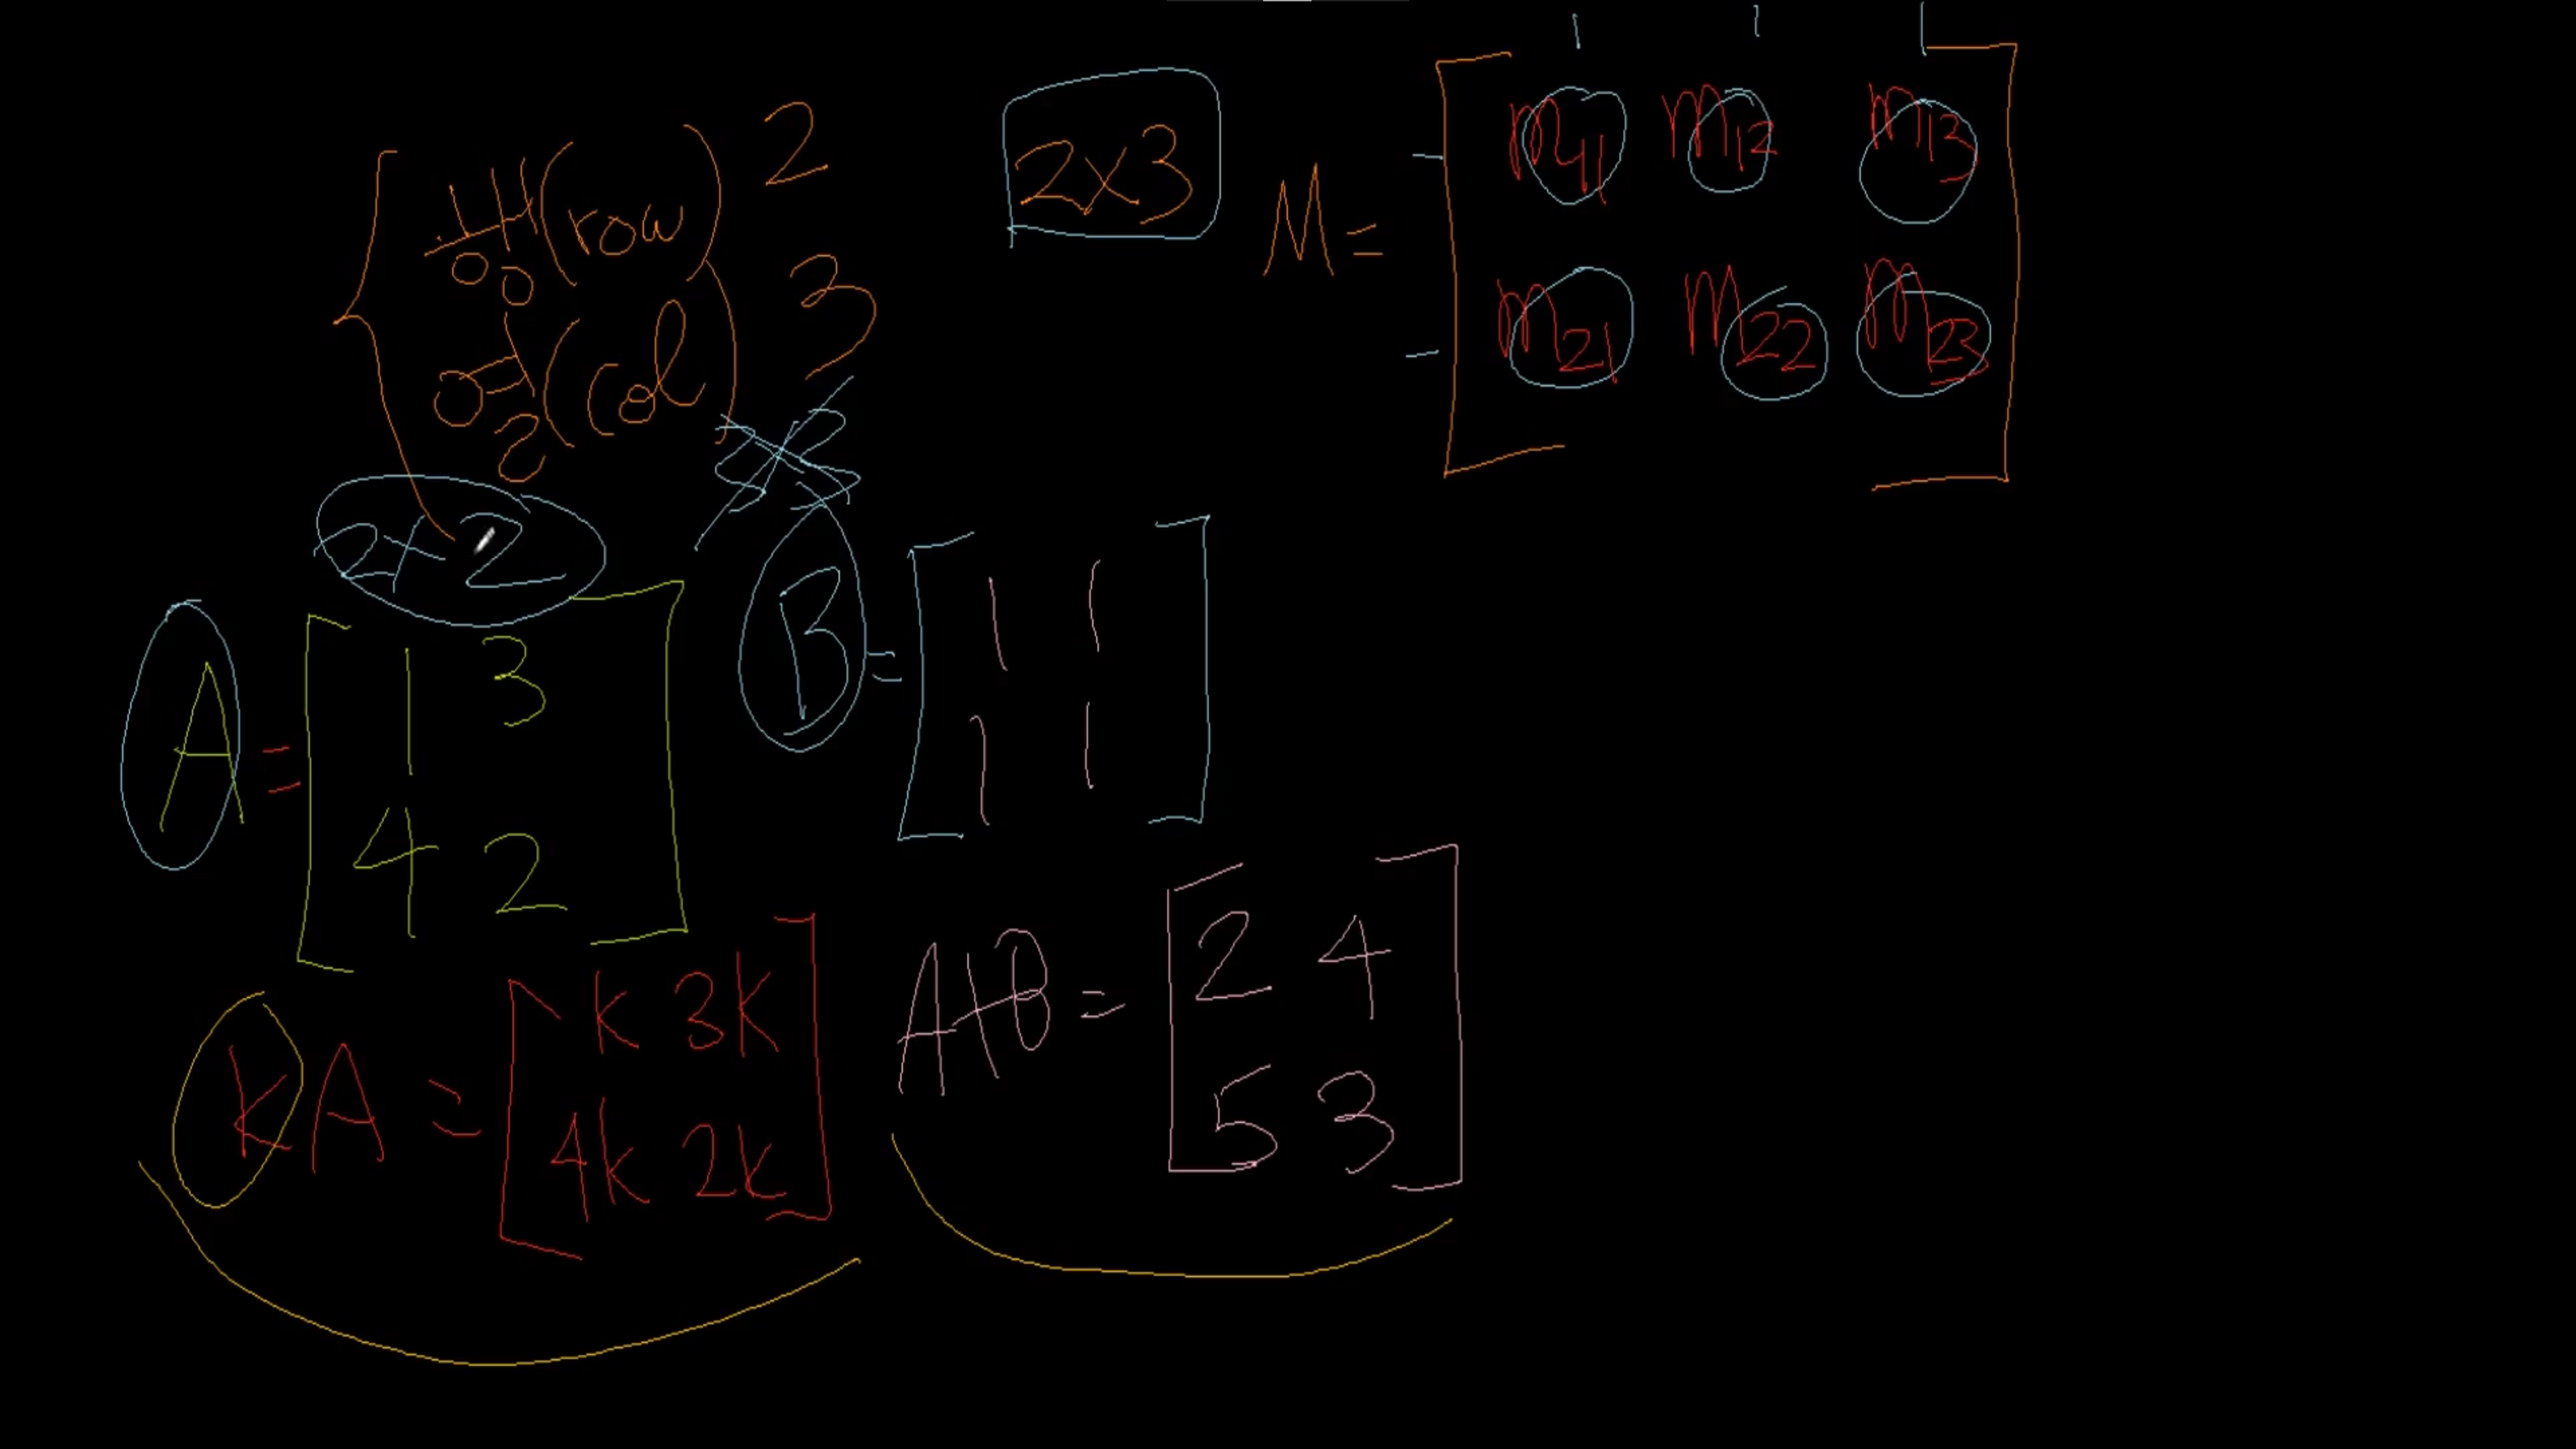 행(row) 2
열(col) 3
2x3
M = [m11 m12 m13
m21 m22 m23]
2x2
A = [1 3
4 2]
B = [1 1
1 1]
kA = [k 3k
4k 2k]
A+B = [2 4
5 3]